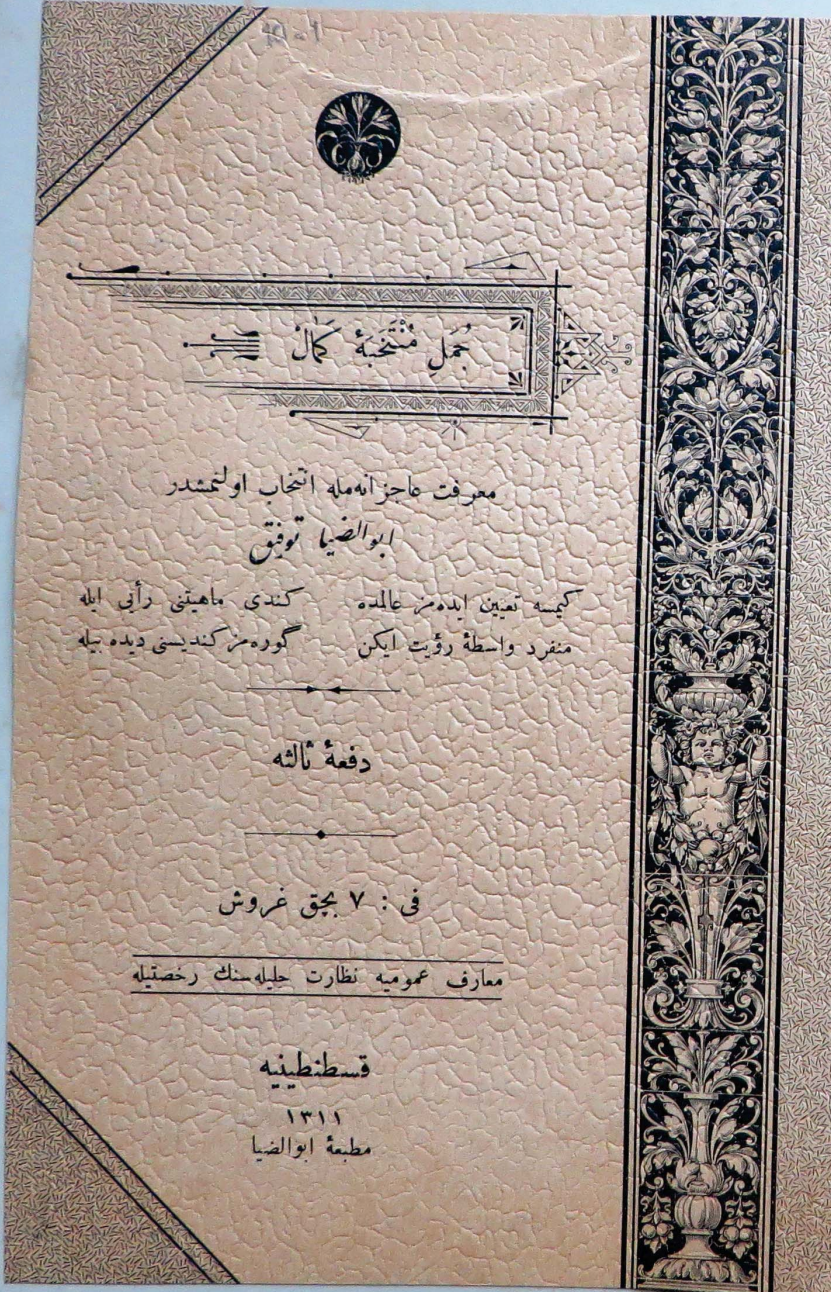 جُمَلِ مُنْتَخَبَهٔ كَمَالْ
معرفت عاجزانه‌مله انتخاب اولنمشدر
ابوالضيا توفيق
كيمسه تعيين ايده‌مز عالمده كندى ماهيتنى رأيى ايله
منفرد واسطهٔ رؤيت ايكن گوره‌مز كنديسنى ديده بيله
دفعهٔ ثالثه
فى : ٧ بچق غروش
معارف عموميه نظارت جليله‌سنك رخصتيله
قسطنطينيه
١٣١١
مطبعهٔ ابوالضيا